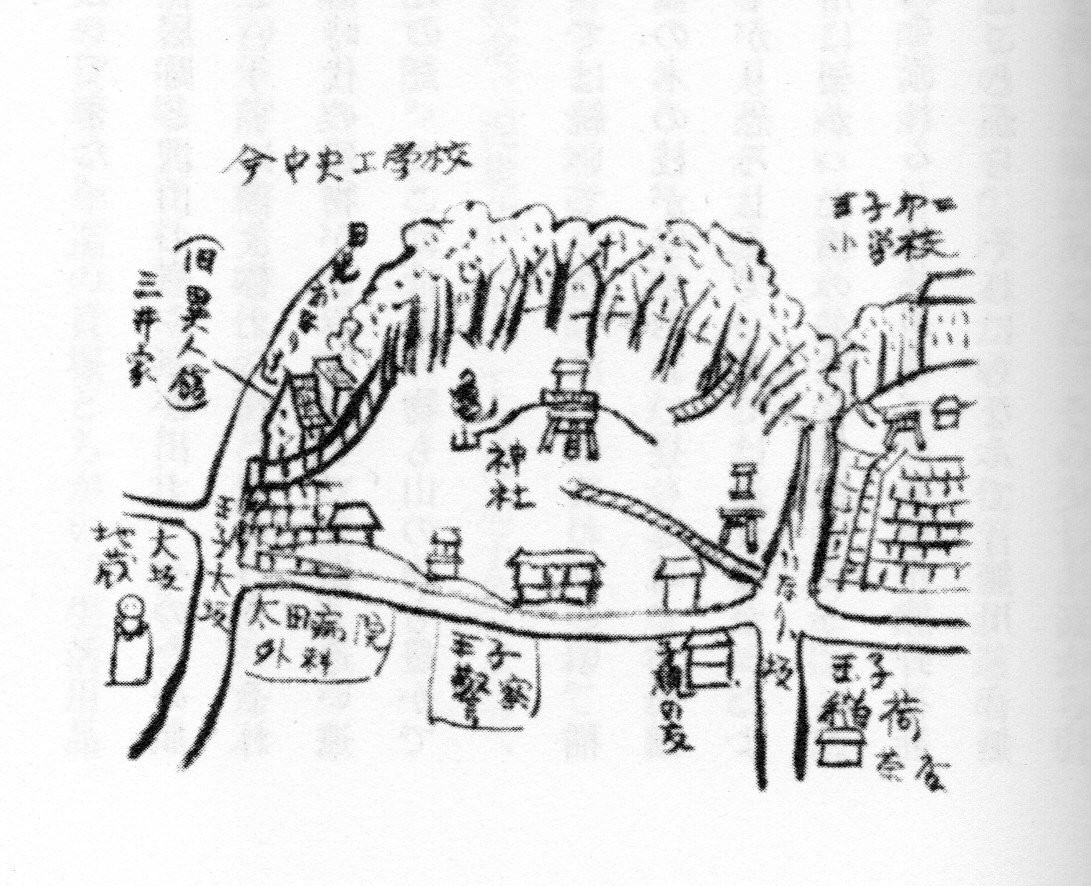 今中央工学校
王子第二
小学校
(旧異人館)
三井家
亀山
神社
王子大坂
大坂
地蔵
太田病院
外科
王子
警察
親の友
いなり坂
王子
稲荷
茶屋